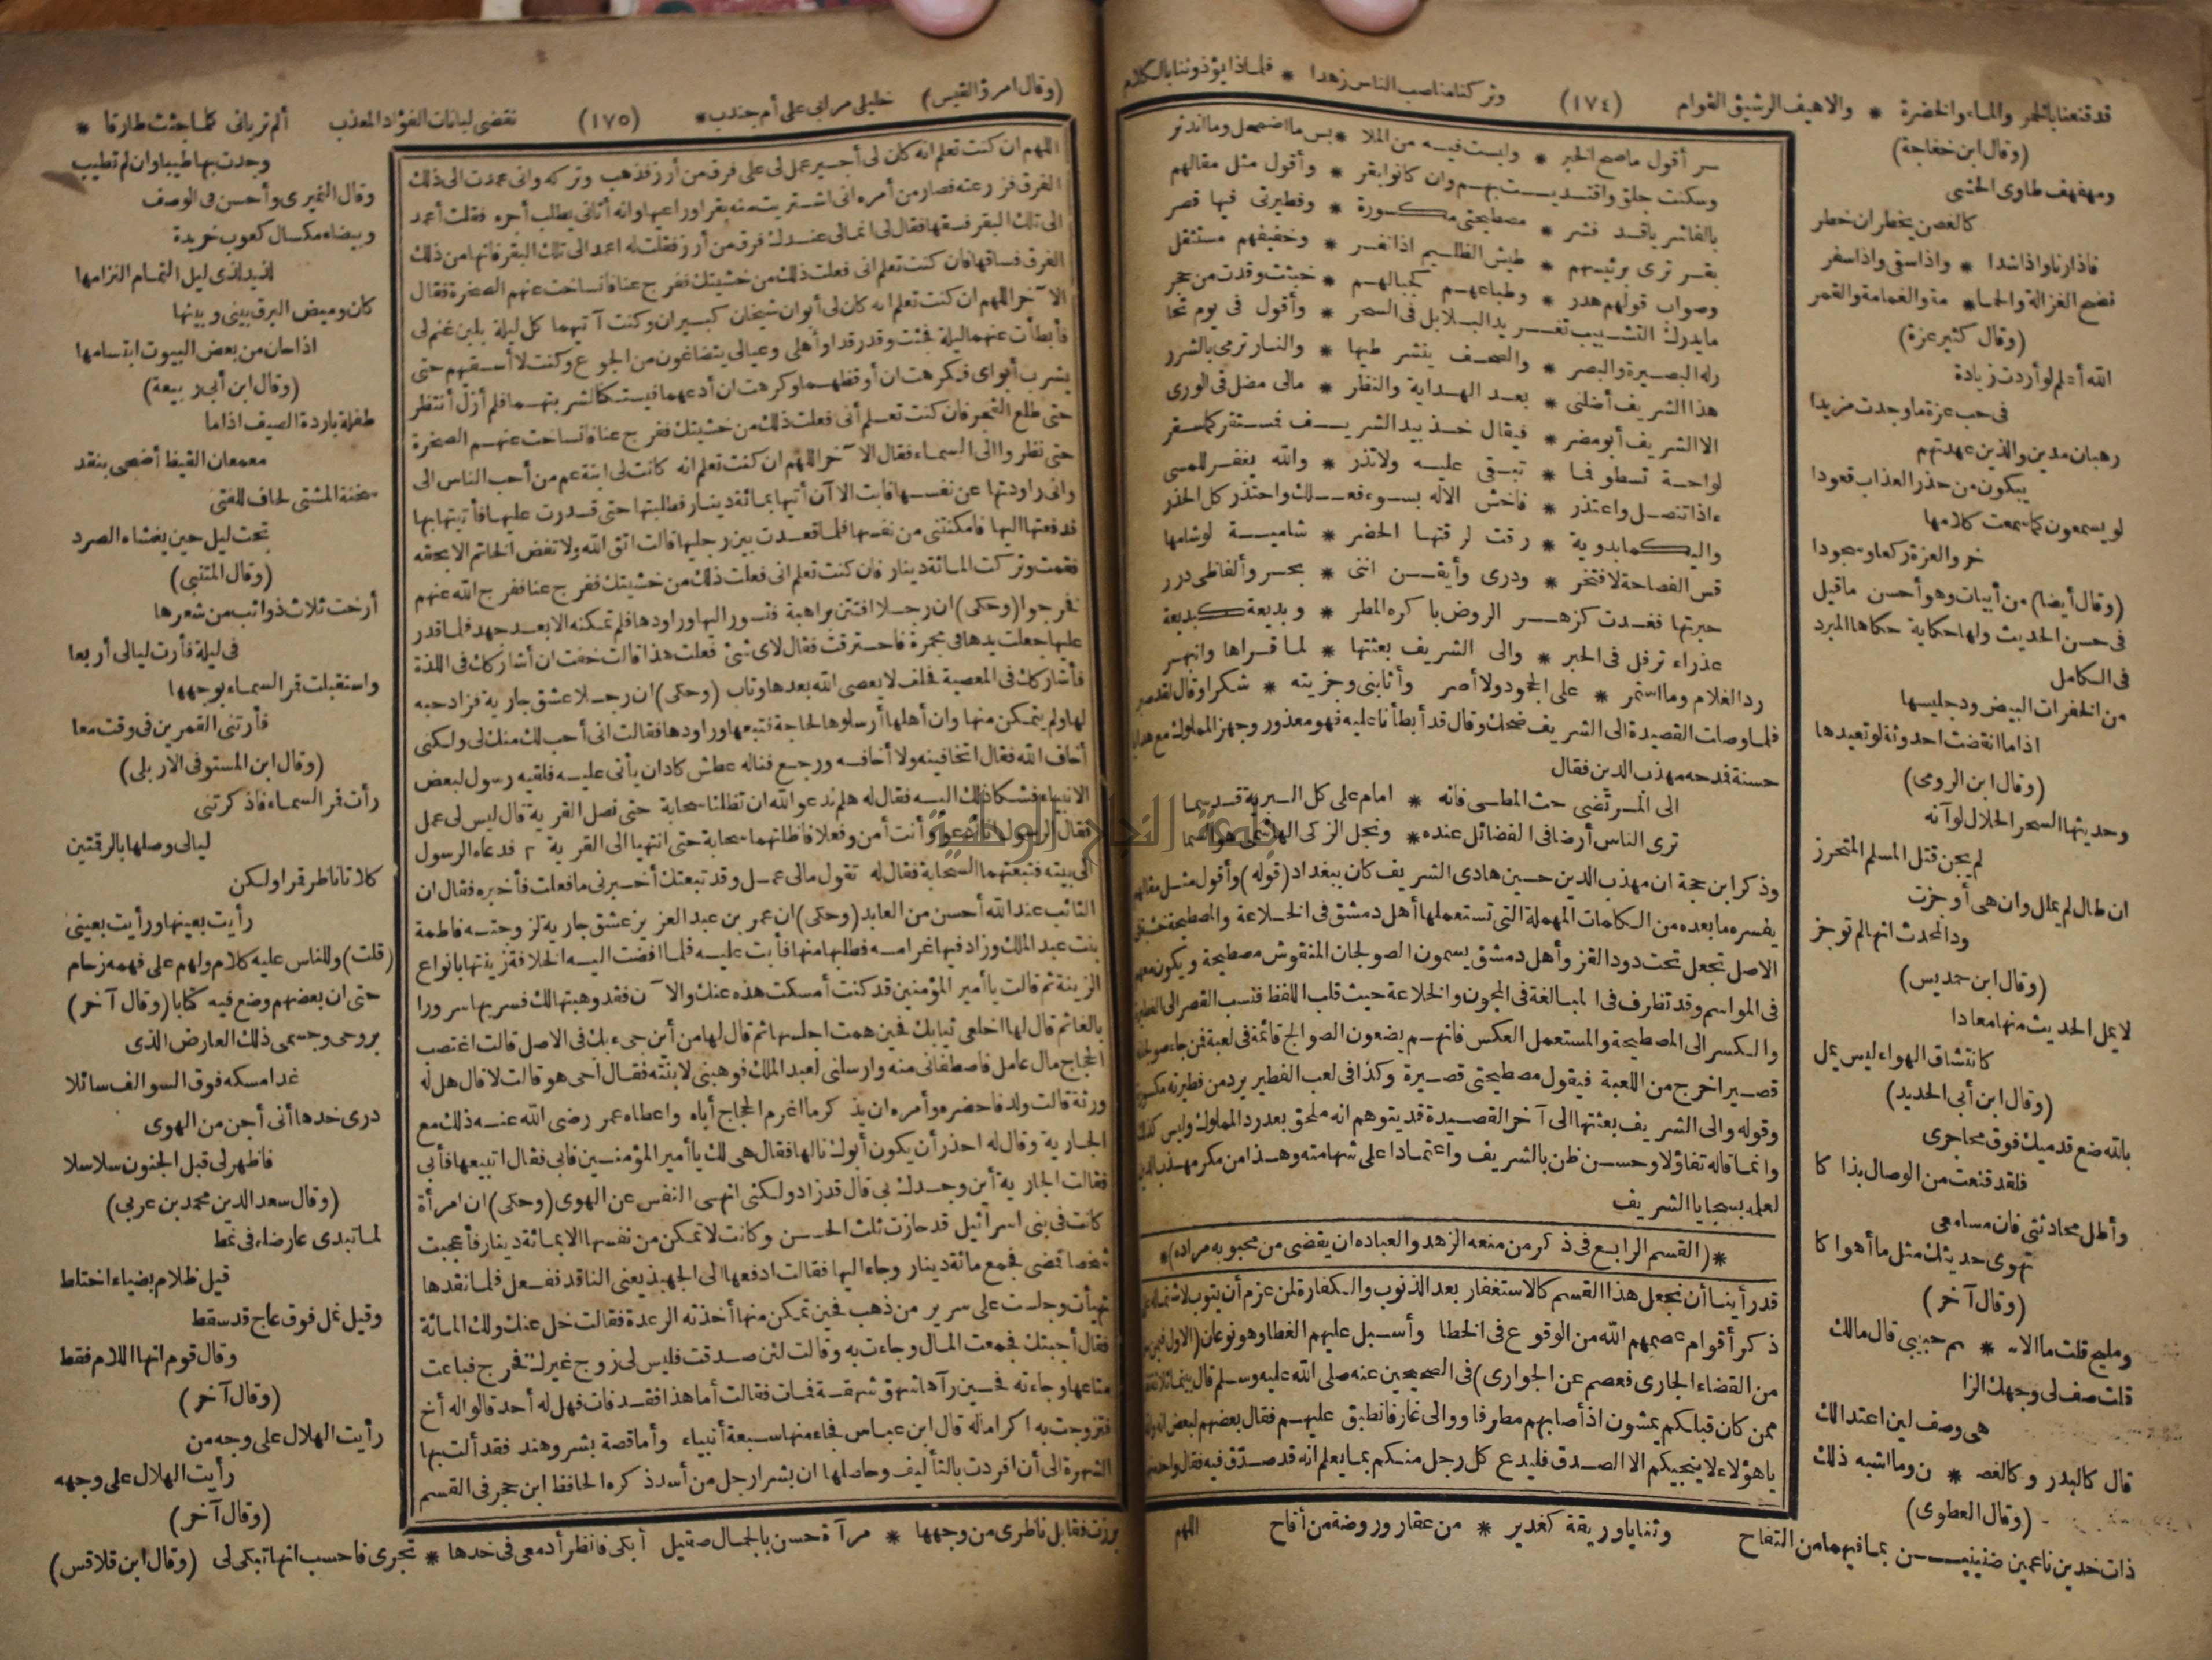 قد قنعنا بالخمر والماء والخضرة * والاهيف الرشيق القوام
(١٧٤)
وتركنا مناصب الناس زهدا * فلماذا يؤذوننا بالكلام
(وقال ابن خفاجة)
ومهفهف طاوى الحشى
كالغصن يخطر ان خطر
فاذا رنا واذا شدا * واذا سقى واذا سفر
فضح الغزالة والحما * مة والغمامة والقمر
(وقال كثير عزة)
الله أعلم لو أردت زيادة
فى حب عزة ما وجدت مزيدا
رهبان مدين والذين عهدتهم
يبكون من حذر العذاب قعودا
لو يسمعون كما سمعت كلامها
خروا لعزة ركعا وسجودا
(وقال أيضا) من أبيات وهو أحسن ما قيل
فى حسن الحديث ولها حكاية حكاها المبرد
فى الكامل
من الخفرات البيض ود جليسها
اذا ما انقضت احدوثة لو تعيدها
(وقال ابن الرومى)
وحديثها السحر الحلال لو آنه
لم يجن قتل المسلم المتحرز
ان طال لم يملل وان هى أوجزت
ود المحدث انها لم توجز
(وقال ابن حمديس)
لا يمل الحديث منها معادا
كانتشاق الهواء ليس يمل
(وقال ابن أبى الحديد)
بالله ضع قدميك فوق محاجرى
فلقد قنعت من الوصال بذا كا
وأطل محادثتى فان مسامعى
تهوى حديثك مثل ما أهوا كا
(وقال آخر)
ومليح قلت ما الا * سم حبيبى قال مالك
قلت صف لى وجهك الزا
هى وصف لين اعتدالك
قال كالبدر وكالغصـ * ن وما اشبه ذلك
(وقال العطوى)
ذات خدين ناعمين ضنينيـن بما فيهما من التفاح
وثنايا وريقة كغدير * من عقار وروضة من أقاح
سر أقول ما صح الخبر * وابست فيه من الملا * بس ما اضمحل وما اندثر
وسكنت جلق واقتديت بهم وان كانوا بقر * وأقول مثل مقالهم
بالفاشر ياقد فشر * مصطيحتى مكسورة * وفطيرتى فيها قصر
بقر ترى برئيسهم * طيش الظليم اذا نفر * وخفيفهم مستثقل
وصواب قولهم هدر * وطباعهم كجبالهم * خبثت وقدت من حجر
ما يدرك التشبيب تغريد البلابل فى السحر * وأقول فى يوم تحا
رله البصيرة والبصر * والصحف ينشر طيها * والنار ترمى بالشرر
هذا الشريف أضلنى * بعد الهداية والنظر * مالى مضل فى الورى
الا الشريف أبو مضر * فيقال خذ بيد الشريف فمستقر كما سقر
لواحة تسطو فما * تبقى عليه ولا تذر * والله يغفر للمسى
ء اذا تنصل واعتذر * فاخش الاله بسوء فعلك واحتذر كل الحذر
واليكها بدوية * رقت لرقتها الحضر * شامية لو شامها
قس الفصاحة لافتخر * ودرى وأيقن اننى * بحر وألفاظى درر
حبرتها فغدت كزهر الروض باكره المطر * وبديعة كبديعة
عذراء ترفل فى الحبر * والى الشريف بعثتها * لما قراها وانبهر
رد الغلام وما استمر * على الجحود ولا أصر وأثابنى وجزيته * شكرا وقال لقد صبر
فلما وصلت القصيدة الى الشريف ضحك وقال قد أبطأنا عليه فهو معذور وجهز المملوك مع هدايا
حسنة فدحه مهذب الدين فقال
الى المرتضى حث المطى فانه * امام على كل البرية قد سما
ترى الناس أرضا فى الفضائل عنده * ونجل الزكى الهاشمى هو السما
وذكر ابن حجة ان مهذب الدين حسين هادى الشريف كان ببغداد (قوله) وأقول مثل مقالهم
يفسره ما بعده من الكلمات المهملة التى تستعملها أهل دمشق فى الخلاعة والمصطيحة
الاصل تجعل تحت دود القز وأهل دمشق يسمون الصولجان المنقوش مصطيحة ويكون معهم
فى المواسم وقد تظارف فى المبالغة فى المجون والخلاعة حيث قلب اللفظ فنسب القصر الى الفطيرة
والكسر الى المصطيحة والمستعمل العكس فانهم يضعون الصوالج قائمة فى لعبة فمن جاء
قصيرا خرج من اللعبة فيقول مصطيحتى قصيرة وكذا فى لعب الفطير يرد من فطيرته مكسورة
وقوله والى الشريف بعثتها الى آخر القصيدة قد يتوهم انه ملحق بعد رد المملوك وليس كذلك
وانما قاله تفاؤلا وحسن ظن بالشريف واعتمادا على شهامته وهذا من مكر مهذب الدين
لعله بسجايا الشريف
*(القسم الرابع فى ذكر من منعه الزهد والعباده ان يقضى من محبوبه مراده)*
قد رأينا أن نجعل هذا القسم كالاستغفار بعد الذنوب والكفارة لمن عزم أن يتوب لاشتماله على
ذكر أقوام عصمهم الله من الوقوع فى الخطا وأسبل عليهم الغطا وهو نوعان (الاول
من القضاء الجارى فعصم عن الجوارى) فى الصحيحين عنه صلى الله عليه وسلم قال بينما ثلاثة
ممن كان قبلكم يمشون اذ أصابهم مطر فاووا الى غار فانطبق عليهم فقال بعضهم لبعض
يا هؤلاء لا ينجيكم الا الصدق فليدع كل رجل منكم بما يعلم انه قد صدق فيه فقال واحد
اللهم
(وقال امرؤ القيس) خليلى مرابى على أم جندب *
(١٧٥)
نقضى لبانات الفؤاد المعذب ألم تريانى كلما جئت طارقا *
اللهم ان كنت تعلم انه كان لى أجير عمل لى على فرق من أرز فذهب وتركه وانى عمدت الى ذلك
الفرق فزرعته فصار من أمره انى اشتريت منه بقرا وراعيها وانه أتانى يطلب أجره فقلت أعمد
الى تلك البقر فسقها فقال لى انمالى عندك فرق من أرز فقلت له اعمد الى تلك البقر فانها من ذلك
الفرق فساقها فان كنت تعلم انى فعلت ذلك من خشيتك ففرج عنا فانساخت عنهم الصخرة فقال
الآخر اللهم ان كنت تعلم انه كان لى أبوان شيخان كبيران وكنت آتيهما كل ليلة بلبن غنم لى
فأبطأت عنهما ليلة فجئت وقد رقدا وأهلى وعيالى يتضاغون من الجوع وكنت لا أسقيهم حتى
يشرب أبواى فكرهت ان أوقظهما وكرهت ان أدعهما فيستكنا لشربتهما فلم أزل أنتظر
حتى طلع الفجر فان كنت تعلم أنى فعلت ذلك من خشيتك ففرج عنا فانساخت عنهم الصخرة
حتى نظروا الى السماء فقال الآخر اللهم ان كنت تعلم انه كانت لى ابنة عم من أحب الناس الى
وانى راودتها عن نفسها فابت الا آن أتيها بمائة دينار فطلبتها حتى قدرت عليها فأتيتها بها
فدفعتها اليها فامكنتنى من نفسها فلما قعدت بين رجليها قالت اتق الله ولا تفض الخاتم الا بحقه
فقمت وتركت المائة دينار فان كنت تعلم انى فعلت ذلك من خشيتك ففرج عنا ففرج الله عنهم
فخرجوا (وحكى) ان رجلا افتتن براهبة فتسور اليها وراودها فلم تمكنه الا بعد جهد فلما قدر
عليها جعلت يدها فى مجمرة فاحترقت فقال لاى شئ فعلت هذا قالت خفت ان أشاركك فى اللذة
فأشاركك فى المعصية فحلف لا يعصى الله بعدها وتاب (وحكى) ان رجلا عشق جارية فزاد حبه
لها ولم يتمكن منها وان أهلها أرسلوها لحاجة فتبعها وراودها فقالت انى أحب لك منك لى ولكنى
أخاف الله فقال اتخافينه ولا أخافه ورجع فناله عطش كاد ان يأتى عليه فلقيه رسول لبعض
الانبياء فشكا ذلك اليه فقال له هلم ندعو الله ان تظلنا سحابة حتى نصل القرية قال ليس لى عمل
فقال الرسول أنا أدعو وأنت أمن وفعلا فاظلتهما سحابة حتى انتهيا الى القرية فدعاه الرسول
الى بيته فتبعتهما السحابة فقال له تقول مالى عمل وقد تبعتك أخبرنى ما فعلت فأخبره فقال ان
التائب عند الله أحسن من العابد (وحكى) ان عمر بن عبد العزيز عشق جارية لزوجته فاطمة
بنت عبد الملك وزاد فيها غرامه فطلبها منها فأبت عليه فلما افضت اليه الخلافة زينتها بانواع
الزينة ثم قالت يا أمير المؤمنين قد كنت أمسكت هذه عنك والآن فقد وهبتها لك فسر بها سرورا
بالغا ثم قال لها اخلعى ثيابك فحين همت اجلسها ثم قال لها من أين جىء بك فى الاصل قالت اغتصب
الحجاج مال عامل فاصطفانى منه وارسلنى لعبد الملك فوهبنى لابنته فقال أحى هو قالت لا قال هل له
ورثة قالت ولد فاحضره وأمره ان يذكر ما اغرم الحجاج أباه واعطاه عمر رضى الله عنه ذلك مع
الجارية وقال له احذر أن يكون أبوك نالها فقال هى لك يا أمير المؤمنين فابى فقال اتبيعها فأبى
فقالت الجارية أين وجدك بى قال قد زاد ولكنى انهى النفس عن الهوى (وحكى) ان امرأة
كانت فى بنى اسرائيل قد حازت ثلث الحسن وكانت لا تمكن من نفسها الا بمائة دينار فأعجبت
شخصا فمضى فجمع مائة دينار وجاء اليها فقالت ادفعها الى الجهبذ يعنى الناقد ففعل فلما نقدها
تهيأت وجلست على سرير من ذهب فحين تمكن منها أخذته الرعدة فقالت خل عنك ولك المائة
فقال أجبتك فجمعت المال وجاءت به وقالت لئن صدقت فليس لى زوج غيرك فخرج فباعت
متاعها وجاءته فحين رآها شهق شهقة فمات فقالت أما هذا فقد فات فهل له أحد قالوا له أخ
فتزوجت به اكراما له قال ابن عباس فجاء منها سبعة أنبياء وأما قصة بشر وهند فقد ألت بها
الشهرة الى أن افردت بالتأليف وحاصلها ان بشرا رجل من أسد ذكره الحافظ ابن حجر فى القسم
وجدت بها طيبا وان لم تطيب
وقال النميرى وأحسن فى الوصف
وبيضاء مكسال كعوب خريدة
لذيذ لدى ليل التمام التزامها
كان وميض البرق بينى وبينها
اذا حان من بعض البيوت ابتسامها
(وقال ابن أبى ربيعة)
طفلة باردة الصيف اذا ما
معمعان القيظ أضحى يتقد
سخنة المشتى لحاف للفتى
تحت ليل حين يغشاه الصرد
(وقال المتنبى)
أرخت ثلاث ذوائب من شعرها
فى ليلة فأرت ليالى أربعا
واستقبلت قمر السماء بوجهها
فأرتنى القمرين فى وقت معا
(وقال ابن المستوفى الاربلى)
رأت قمر السماء فاذكرتنى
ليالى وصلها بالرقمتين
كلانا ناظر قمرا ولكن
رأيت بعينها ورأت بعينى
(قلت) وللناس عليه كلام ولهم على فهمه زحام
حتى ان بعضهم وضع فيه كتابا (وقال آخر)
بروحى وجسمى ذلك العارض الذى
غدا مسكه فوق السوالف سائلا
درى خدها أنى أجن من الهوى
فاظهر لى قبل الجنون سلاسلا
(وقال سعد الدين محمد بن عربى)
لما تبدى عارضاه فى نمط
قيل ظلام بضياء اختلط
وقيل نمل فوق عاج قد سقط
وقال قوم انها اللام فقط
(وقال آخر)
رأيت الهلال على وجه من
رأيت الهلال على وجهه
(وقال آخر)
برزت فقابل ناظرى من وجهها * مرآة حسن بالجمال صقيل أبكى فانظر أدمعى فى خدها * تجرى فاحسب انها تبكى لى (وقال ابن قلاقس)
جامعة النجاح الوطنية